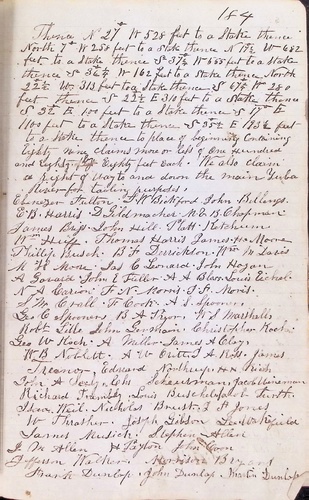 184
Thence N 27° W 528 feet to a Stake thence
North 7° W 258 feet to a stake thence N 19½ W 682
feet to a Stake thence S 37½ W 555 feet to a Stake
thence S 36½ W 162 feet to a Stake thence North
22½ W 313 feet to a Stake thence S 67½ W 280
feet thence S 22½ E 310 feet to a Stake thence
S 3° E 100 feet to a Stake thence S E
1100 feet to a Stake thence S 35½ E 1936 feet
to a Stake thence to place of beginning Containing
Eighty nine claims more or less of one hundred
and Eighty by Eighty feet Each. We also claim
a right of way to and down the main Yuba
River for tailing purposes,
Ebenezer Fulton J. W. Bickford John Billings
E B. Harris D. Gildmacher M. E. B. Chapman
James Bass John Hill Platt Ketchum
Wm Huff Thomas Harris James Moore
Phillip Busch B F Derrickson Wm M Davis
M H Moore Jas C Leonard John Hogan
A Zarade John L Fuller A A Blow Louis
A Carion F. N. Morris J. F. Morris
S M Coall F Cook A S. Spooner
Geo C Spooner B A Tryon W J Marshalls
Robt Lille John Germain Christopher Kochs
Geo W Koch A Miller James A Clay
W B Noblett A W Cutts A Ross James
Treanor, Edward Northrup H H Rich
John A Seely, Chs Scheuerman Jacob Lineman
Richard Frambly Louis Buschelapp Jacob Furth
Isaac Weil Nicholas Brust J F Jones
W Thrasher Joseph Gibson
James Musick Stephen Allen
J. M Allen H Peyton John Corn
Jefferson Walker Harrison Bryson
Frank Dunlop John Dunlop Martin Dunlop